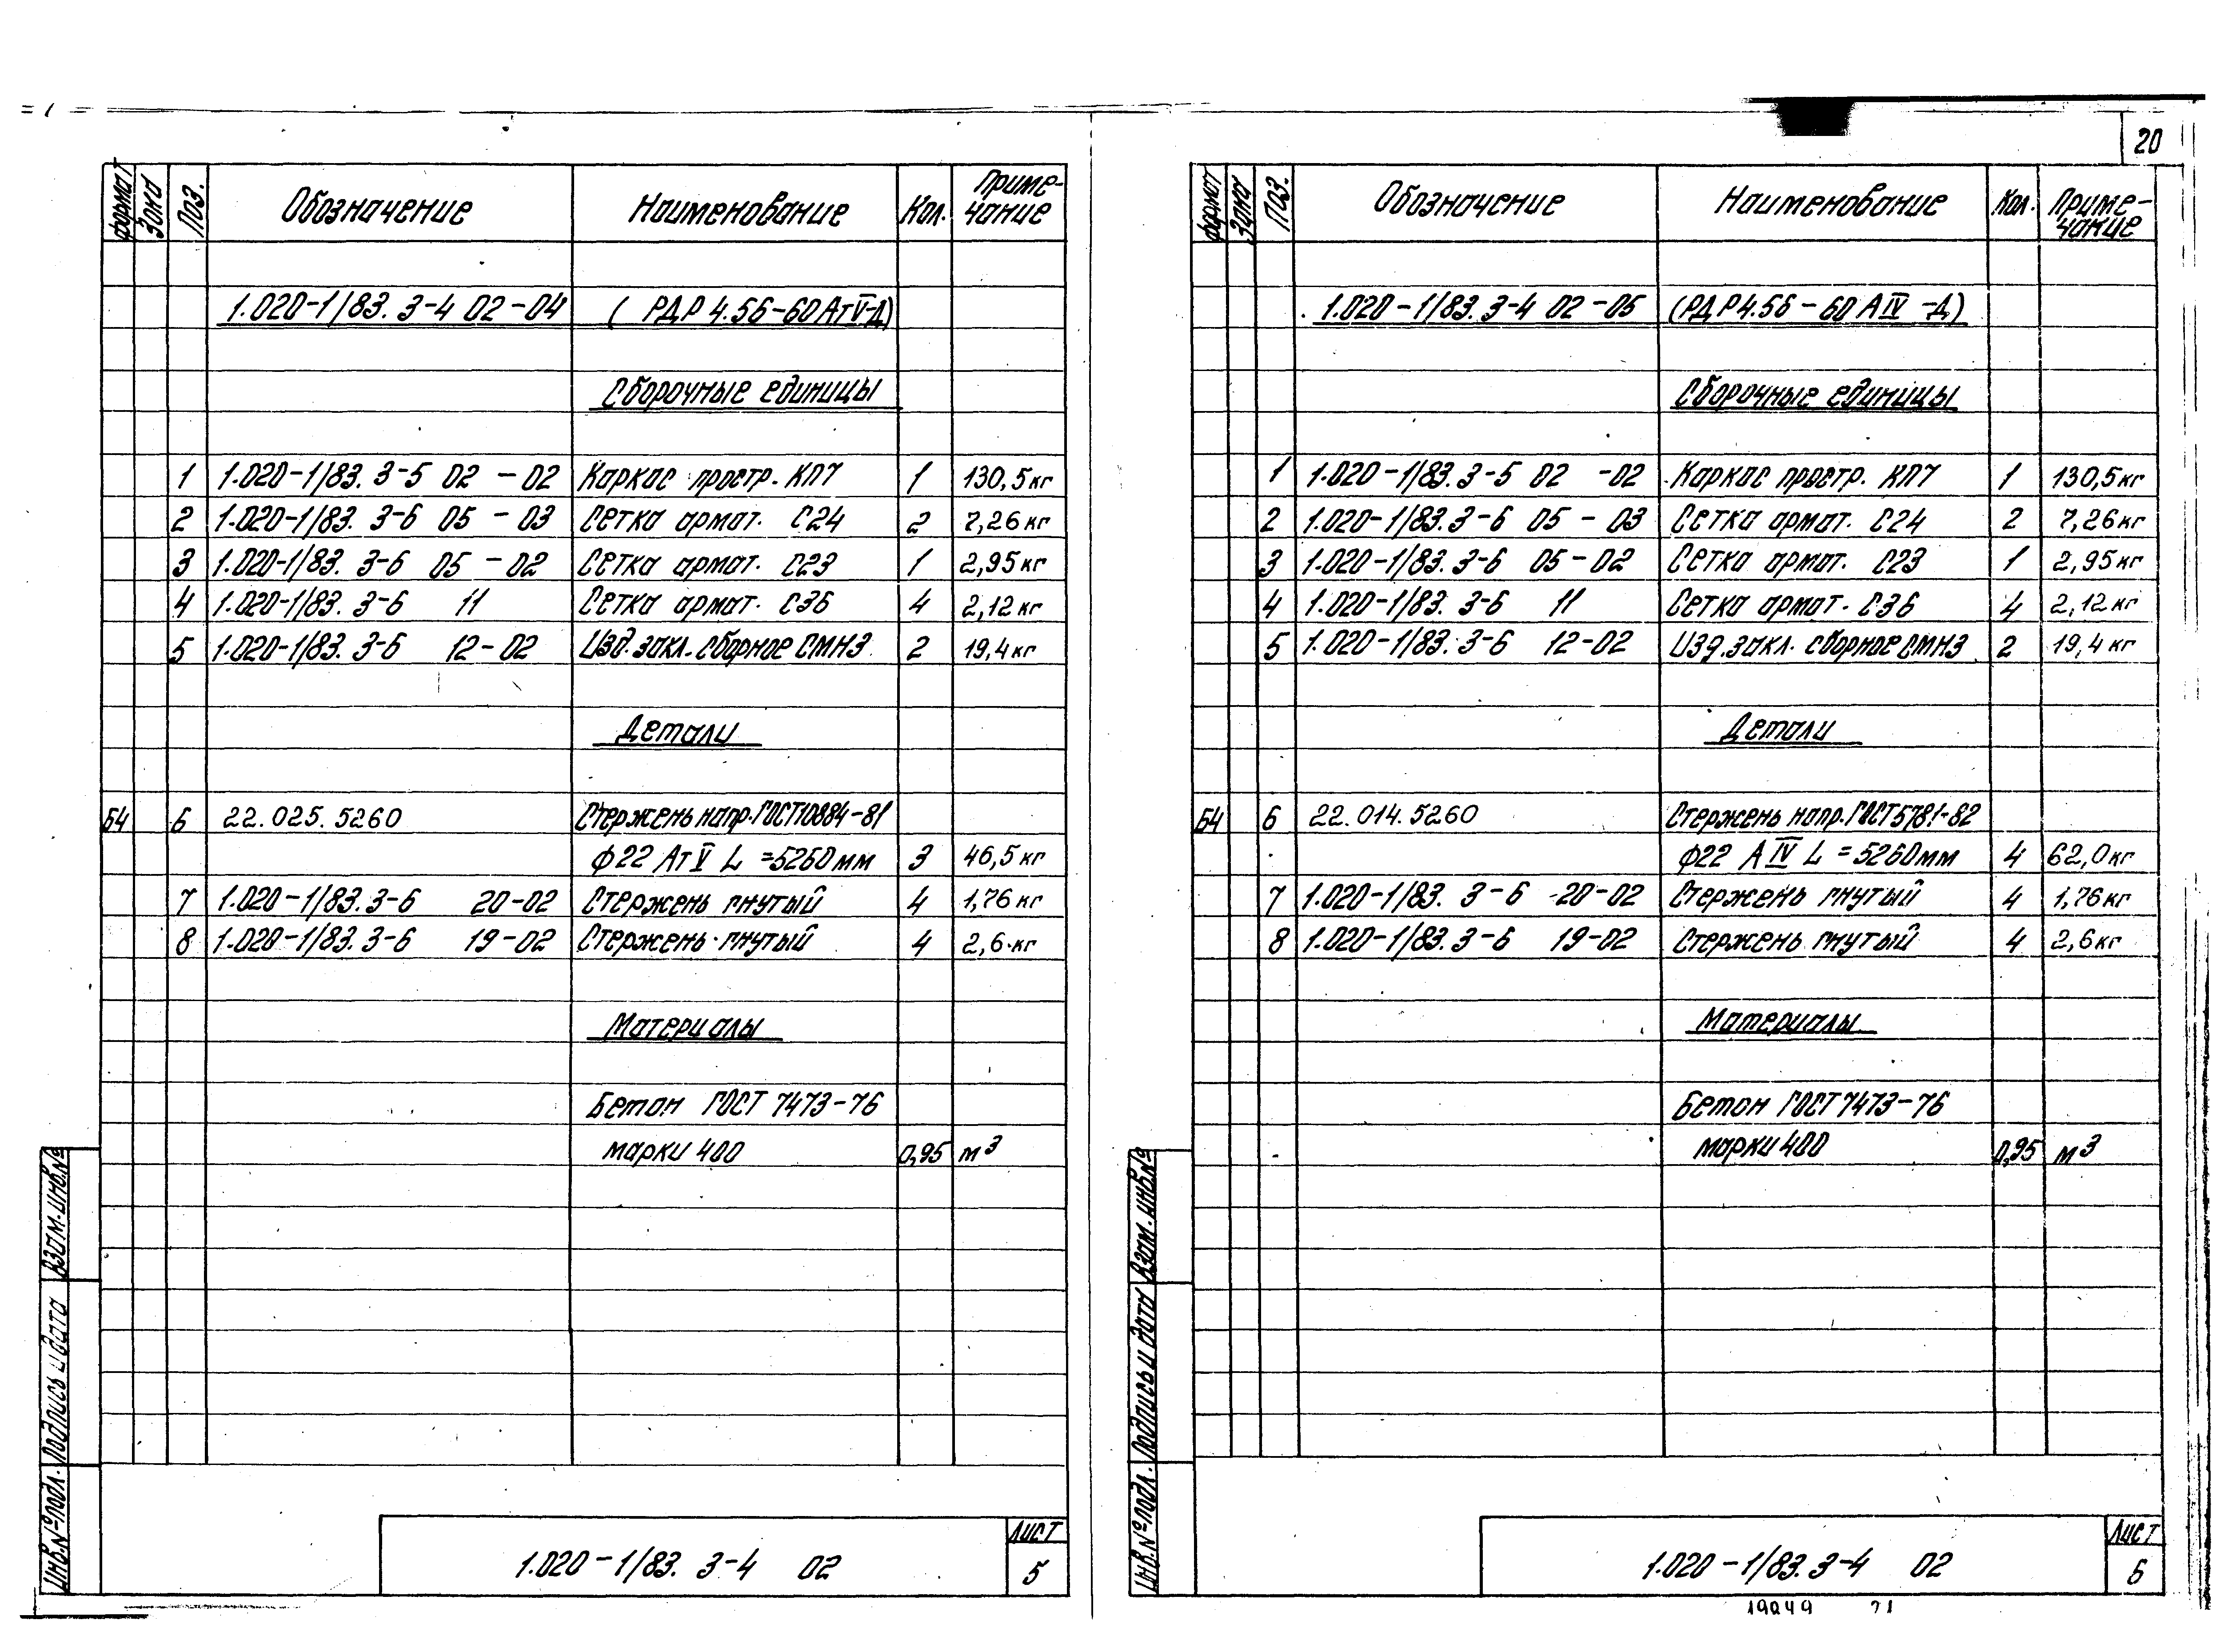 20
Формат Зона Поз. Обозначение Наименование Кол. Приме-
чание
1.020-1/83. 3-4 02-04 (РДР 4.56-60 АтV-Д)
Сборочные единицы
1 1.020-1/83. 3-5 02 -02 Каркас простр. КП7 1 130,5 кг
2 1.020-1/83. 3-6 05 -03 Сетка армат. С24 2 7,26 кг
3 1.020-1/83. 3-6 05 -02 Сетка армат. С23 1 2,95 кг
4 1.020-1/83. 3-6 11 Сетка армат. С36 4 2,12 кг
5 1.020-1/83. 3-6 12-02 Изд. закл. сборное СМН3 2 19,4 кг
Детали
Б4 6 22.025.5260 Стержень напр. ГОСТ10884-81
ф22 АтV L =5260мм 3 46,5 кг
7 1.020-1/83. 3-6 20-02 Стержень гнутый 4 1,76 кг
8 1.020-1/83. 3-6 19-02 Стержень гнутый 4 2,6 кг
Материалы
Бетон ГОСТ 7473-76
марки 400 0,95 м3
Взам. инв. №
Подпись и дата
Инв. № подл.
1.020-1/83. 3-4 02
Лист
5
Формат Зона Поз. Обозначение Наименование Кол. Приме-
чание
1.020-1/83. 3-4 02-05 (РДР4.56-60 АIV-Д)
Сборочные единицы
1 1.020-1/83. 3-5 02 -02 Каркас простр. КП7 1 130,5 кг
2 1.020-1/83. 3-6 05-03 Сетка армат. С24 2 7,26 кг
3 1.020-1/83. 3-6 05-02 Сетка армат. С23 1 2,95 кг
4 1.020-1/83. 3-6 11 Сетка армат. С36 4 2,12 кг
5 1.020-1/83. 3-6 12-02 Изд. закл. сборное СМН3 2 19,4 кг
Детали
Б4 6 22.014.5260 Стержень напр. ГОСТ5781-82
ф22 АIV L =5260мм 4 62,0 кг
7 1.020-1/83. 3-6 20-02 Стержень гнутый 4 1,76 кг
8 1.020-1/83. 3-6 19-02 Стержень гнутый 4 2,6 кг
Материалы
Бетон ГОСТ 7473-76
марки 400 0,95 м3
Взам. инв. №
Подпись и дата
Инв. № подл.
1.020-1/83. 3-4 02
Лист
6